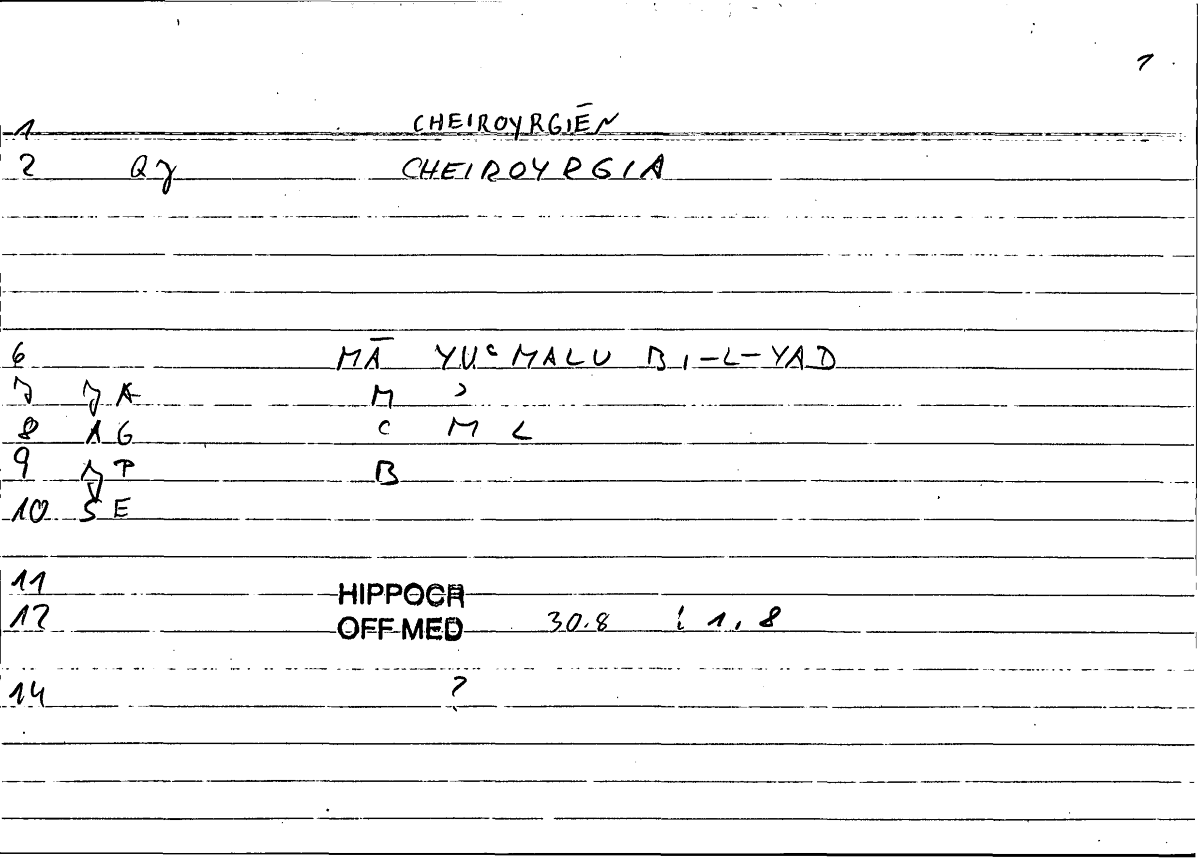 1
1 CHEIROYRGIĒN
2 CHEIROYRGIA
6 MĀ YUᶜMALU BI-L-YAD
7 M ʾ
8 AG ᶜ M L
9 B
10 ŠE
11 HIPPOCR
12 OFF-MED 30.8 : 1,8
14 ?